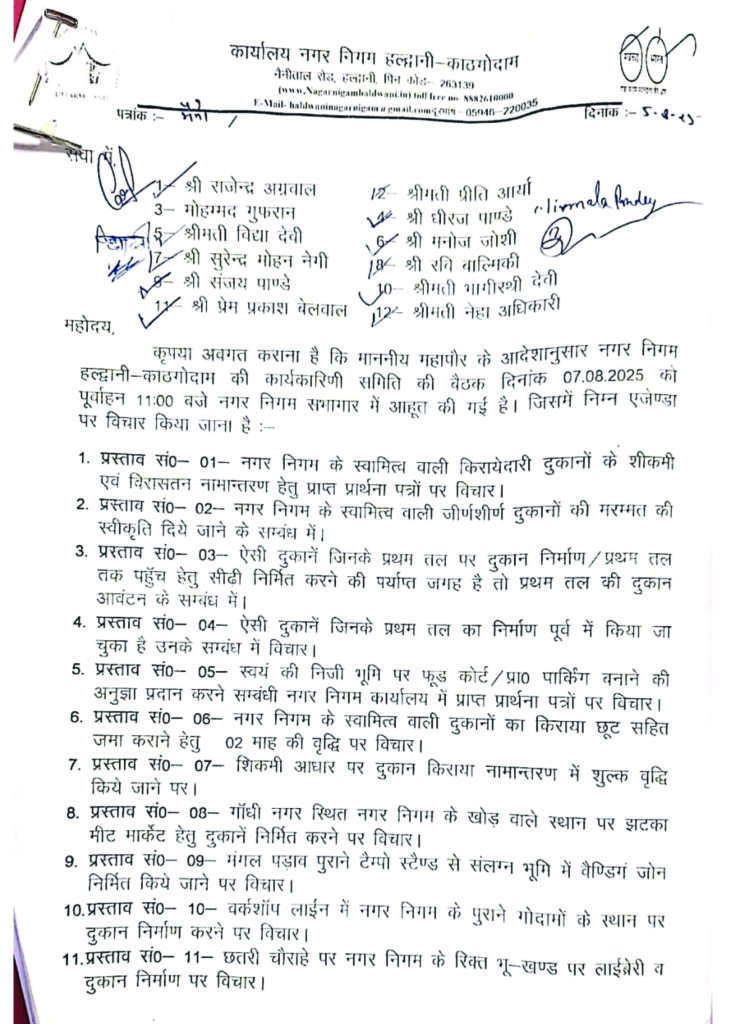 कार्यालय नगर निगम हल्द्वानी–काठगोदाम
नैनीताल रोड, हल्द्वानी, पिन कोड– 263139
(www.Nagarnigamhaldwani.in) toll free no- 8882610000
E-Mail- haldwaninagarnigam@gmail.com दूरभाष - 05946-220035
पत्रांक :–
दिनांक :–
सेवा में,
1– श्री राजेन्द्र अग्रवाल
12– श्रीमती प्रीति आर्या
3– मोहम्मद गुफरान
4– श्री धीरज पाण्डे
Nirmala Pandey
5– श्रीमती विद्या देवी
6– श्री मनोज जोशी
7– श्री सुरेन्द्र मोहन नेगी
8– श्री रवि वाल्मिकी
9– श्री संजय पाण्डे
10– श्रीमती भागीरथी देवी
11– श्री प्रेम प्रकाश बेलवाल
12– श्रीमती नेहा अधिकारी
महोदय,
कृपया अवगत कराना है कि माननीय महापौर के आदेशानुसार नगर निगम
हल्द्वानी–काठगोदाम की कार्यकारिणी समिति की बैठक दिनांक 07.08.2025 को
पूर्वाहन 11:00 बजे नगर निगम सभागार में आहूत की गई है। जिसमें निम्न एजेण्डा
पर विचार किया जाना है :–
1. प्रस्ताव सं0– 01– नगर निगम के स्वामित्व वाली किरायेदारी दुकानों के शीकमी
एवं विरासतन नामान्तरण हेतु प्राप्त प्रार्थना पत्रों पर विचार।
2. प्रस्ताव सं0– 02– नगर निगम के स्वामित्व वाली जीर्णशीर्ण दुकानों की मरम्मत की
स्वीकृति दिये जाने के सम्बंध में।
3. प्रस्ताव सं0– 03– ऐसी दुकानें जिनके प्रथम तल पर दुकान निर्माण/प्रथम तल
तक पहुँच हेतु सीढी निर्मित करने की पर्याप्त जगह है तो प्रथम तल की दुकान
आवंटन के सम्बंध में।
4. प्रस्ताव सं0– 04– ऐसी दुकानें जिनके प्रथम तल का निर्माण पूर्व में किया जा
चुका है उनके सम्बंध में विचार।
5. प्रस्ताव सं0– 05– स्वयं की निजी भूमि पर फूड कोर्ट/प्रा0 पार्किंग बनाने की
अनुज्ञा प्रदान करने सम्बंधी नगर निगम कार्यालय में प्राप्त प्रार्थना पत्रों पर विचार।
6. प्रस्ताव सं0– 06– नगर निगम के स्वामित्व वाली दुकानों का किराया छूट सहित
जमा कराने हेतु 02 माह की वृद्धि पर विचार।
7. प्रस्ताव सं0– 07– शिकमी आधार पर दुकान किराया नामान्तरण में शुल्क वृद्धि
किये जाने पर।
8. प्रस्ताव सं0– 08– गॉधी नगर स्थित नगर निगम के खोड़ वाले स्थान पर झटका
मीट मार्केट हेतु दुकानें निर्मित करने पर विचार।
9. प्रस्ताव सं0– 09– मंगल पड़ाव पुराने टैम्पो स्टैण्ड से संलग्न भूमि में वैण्डिगं जोन
निर्मित किये जाने पर विचार।
10.प्रस्ताव सं0– 10– वर्कशॉप लाईन में नगर निगम के पुराने गोदामों के स्थान पर
दुकान निर्माण करने पर विचार।
11.प्रस्ताव सं0– 11– छतरी चौराहे पर नगर निगम के रिक्त भू–खण्ड पर लाईब्रेरी व
दुकान निर्माण पर विचार।